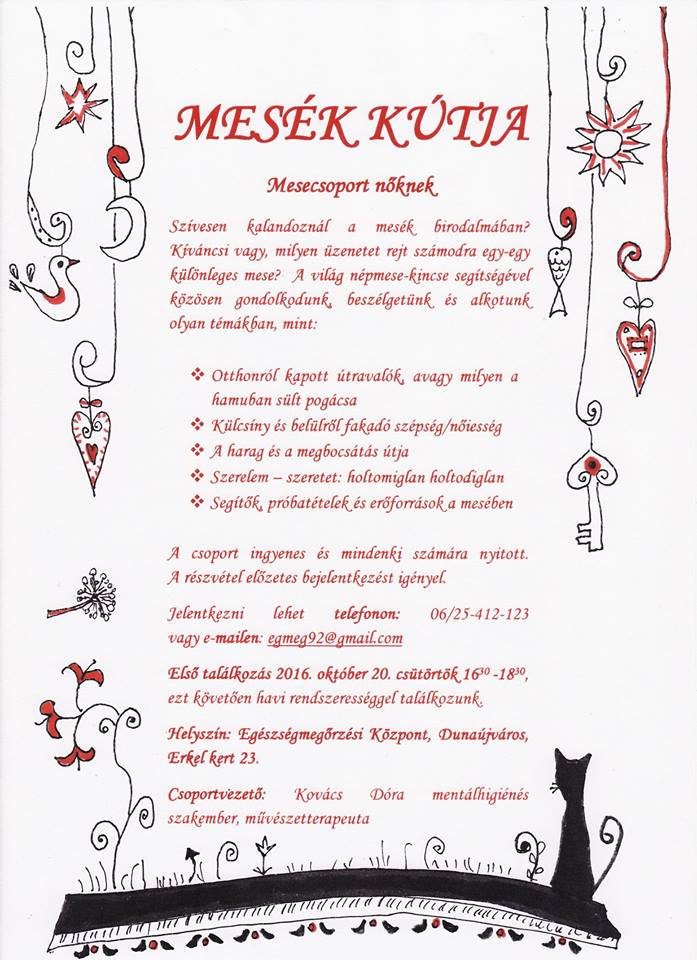 MESÉK KÚTJA
Mesecsoport nőknek
Szívesen kalandoznál a mesék birodalmában?
Kíváncsi vagy, milyen üzenetet rejt számodra egy-egy
különleges mese? A világ népmese-kincse segítségével
közösen gondolkodunk, beszélgetünk és alkotunk
olyan témákban, mint:
❖ Otthonról kapott útravalók, avagy milyen a
hamuban sült pogácsa
❖ Külcsíny és belülről fakadó szépség/nőiesség
❖ A harag és a megbocsátás útja
❖ Szerelem – szeretet: holtomiglan holtodiglan
❖ Segítők, próbatételek és erőforrások a mesében
A csoport ingyenes és mindenki számára nyitott.
A részvétel előzetes bejelentkezést igényel.
Jelentkezni lehet telefonon: 06/25-412-123
vagy e-mailen: egmeg92@gmail.com
Első találkozás 2016. október 20. csütörtök 16³⁰ -18³⁰,
ezt követően havi rendszerességgel találkozunk.
Helyszín: Egészségmegőrzési Központ, Dunaújváros,
Erkel kert 23.
Csoportvezető: Kovács Dóra mentálhigiénés
szakember, művészetterapeuta